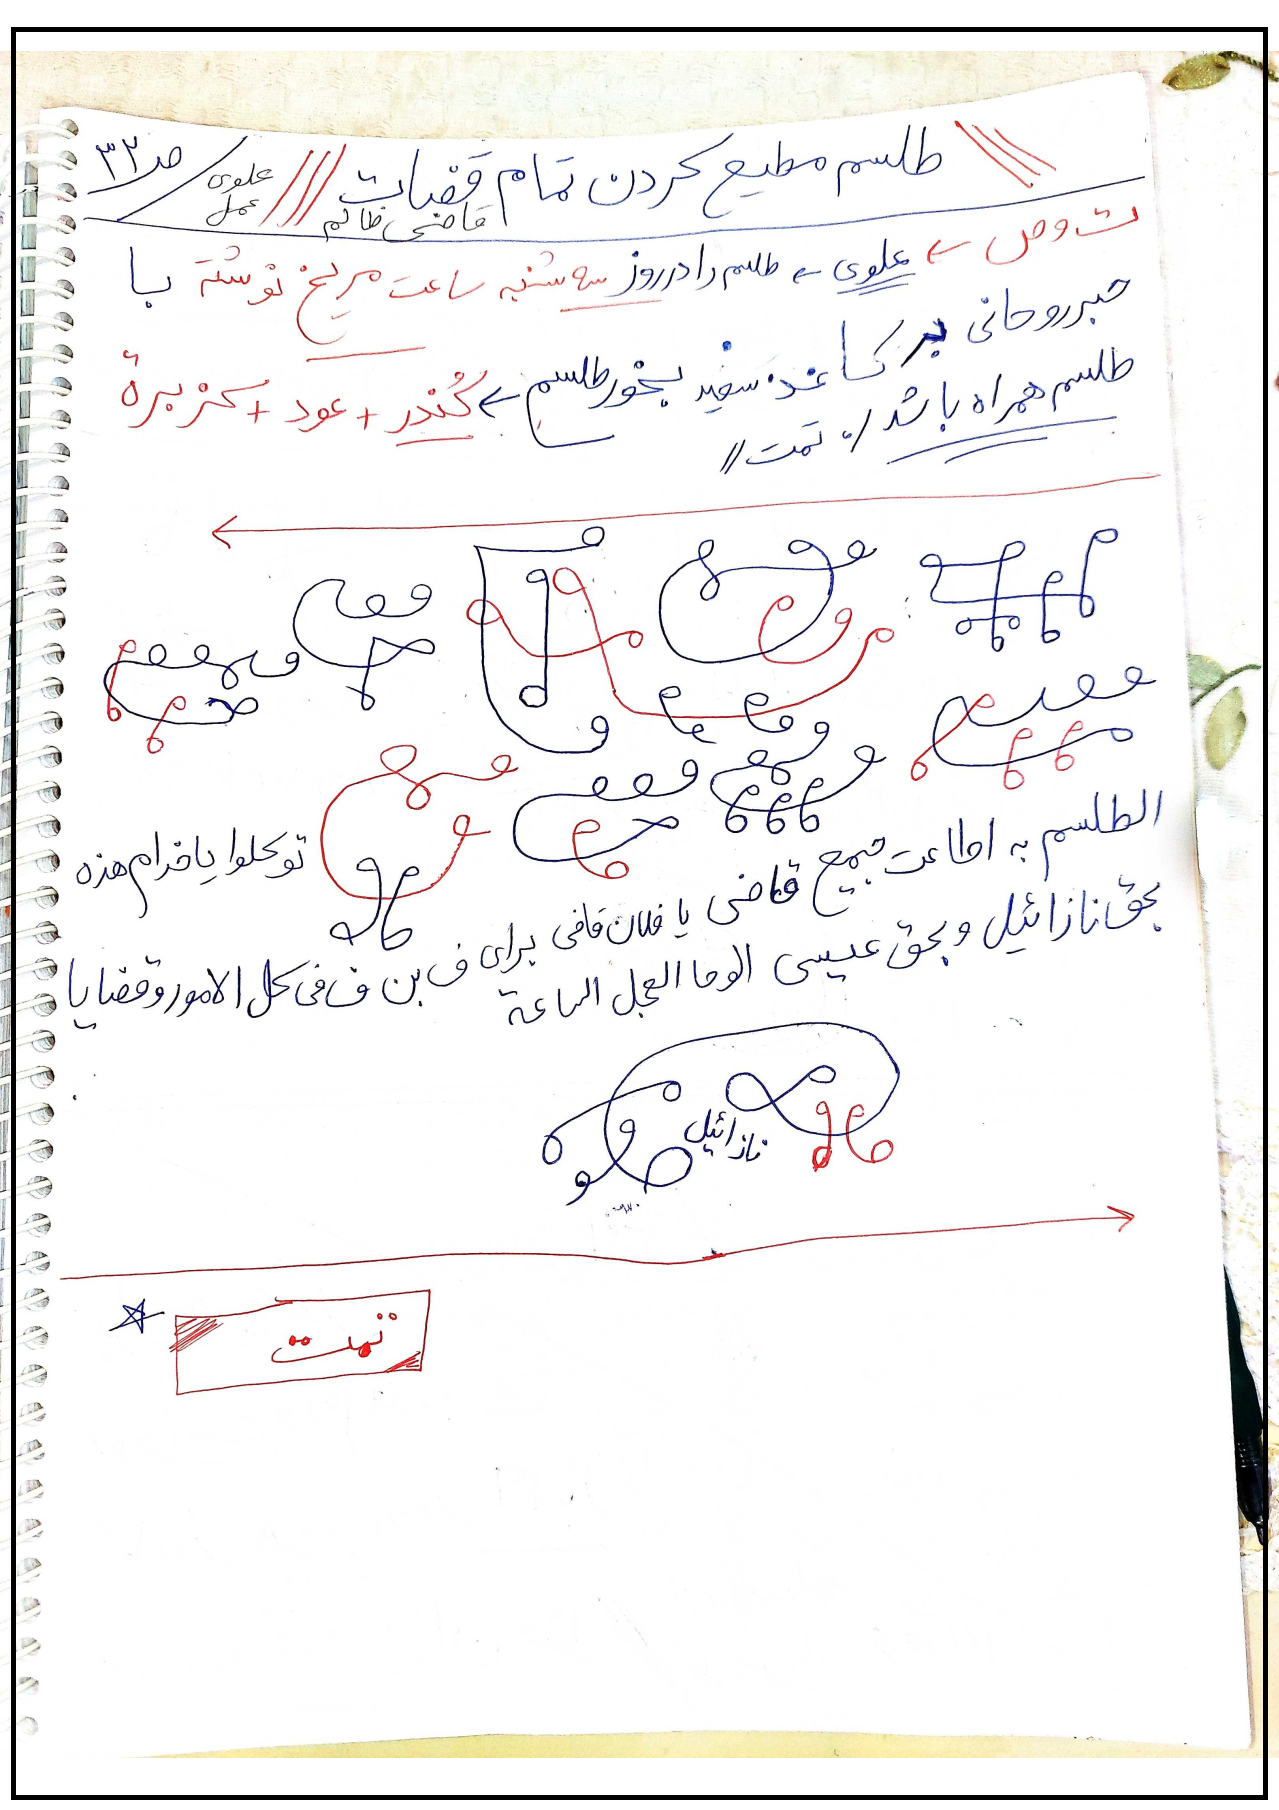 طلسم مطیع کردن تمام قضات /// علوی عمل ص ۳۲
قاضی ظالم
ث وص ← علوی ← طلسم را در روز سه شنبه ساعت مریخ نوشته با
حبر روحانی بر کاغذ سفید بخور طلسم ← کُندر + عود + کزبرة
طلسم همراه باشد /. تمت //
توکلوا یا خدام هذه
الطلسم به اطاعت جمیع قاضی یا فلان قاضی برای ف بن ف فی کل الامور و قضایا
بحق نازائیل و بحق عیسی الوحا العجل الساعة
نازائیل
تمت